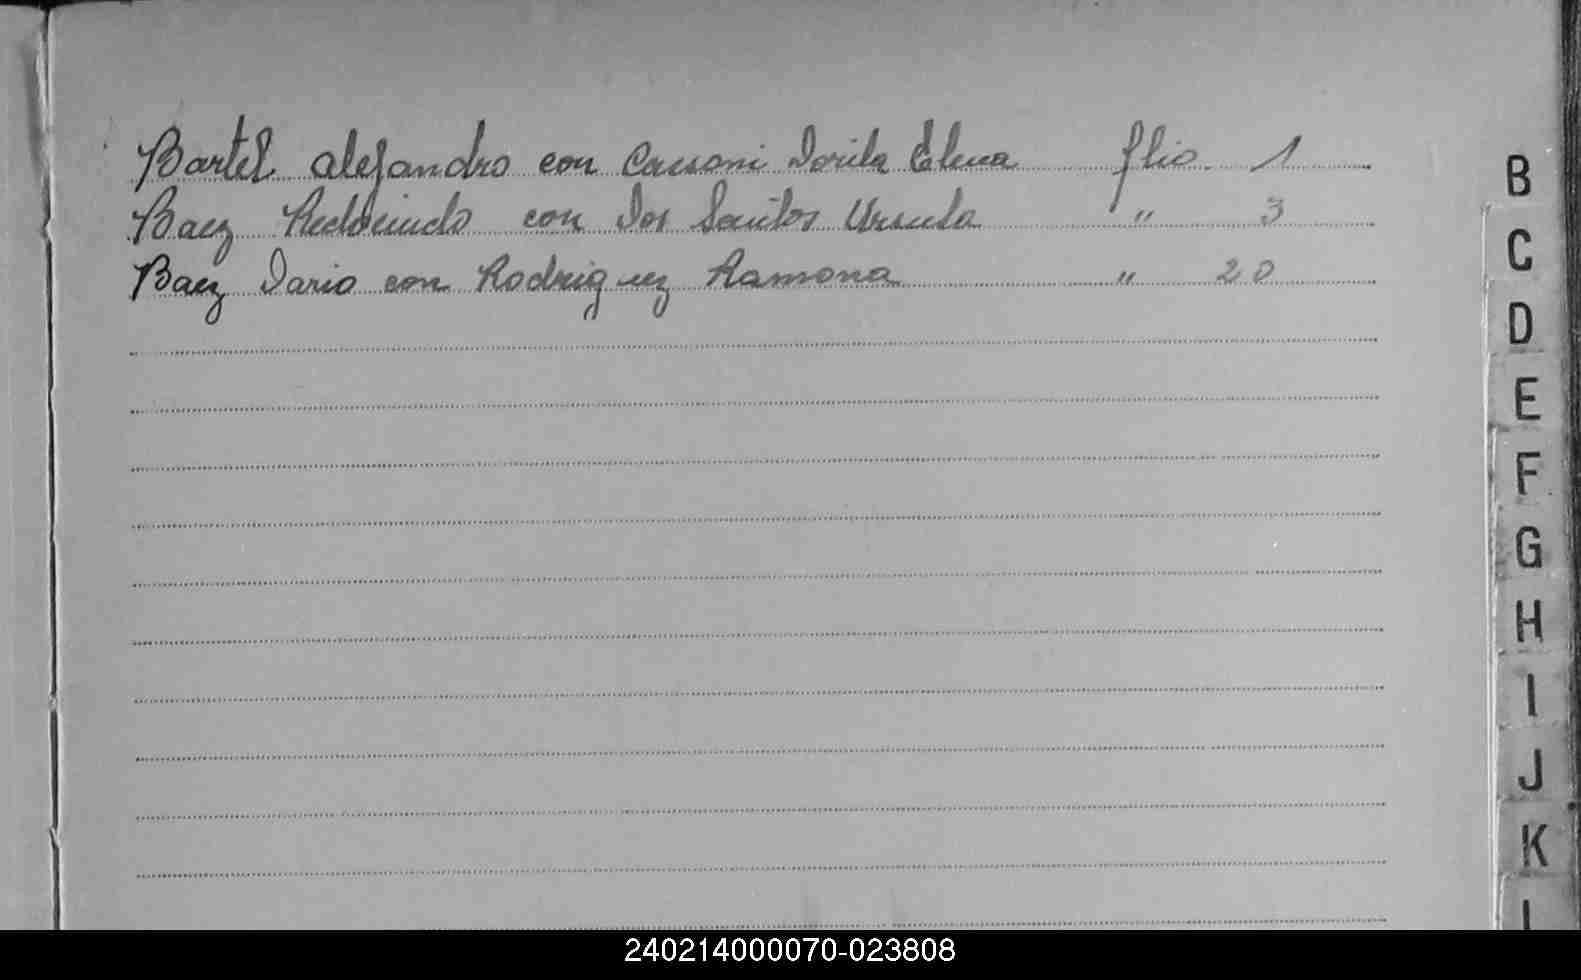 Bartel Alejandro con Cassoni Dorila Elena flio. 1
Baez con Dos Santos Ursula " 3
Baez Dario con Rodriguez Ramona " 20
B
C
D
E
F
G
H
I
J
K
L
240214000070-023808